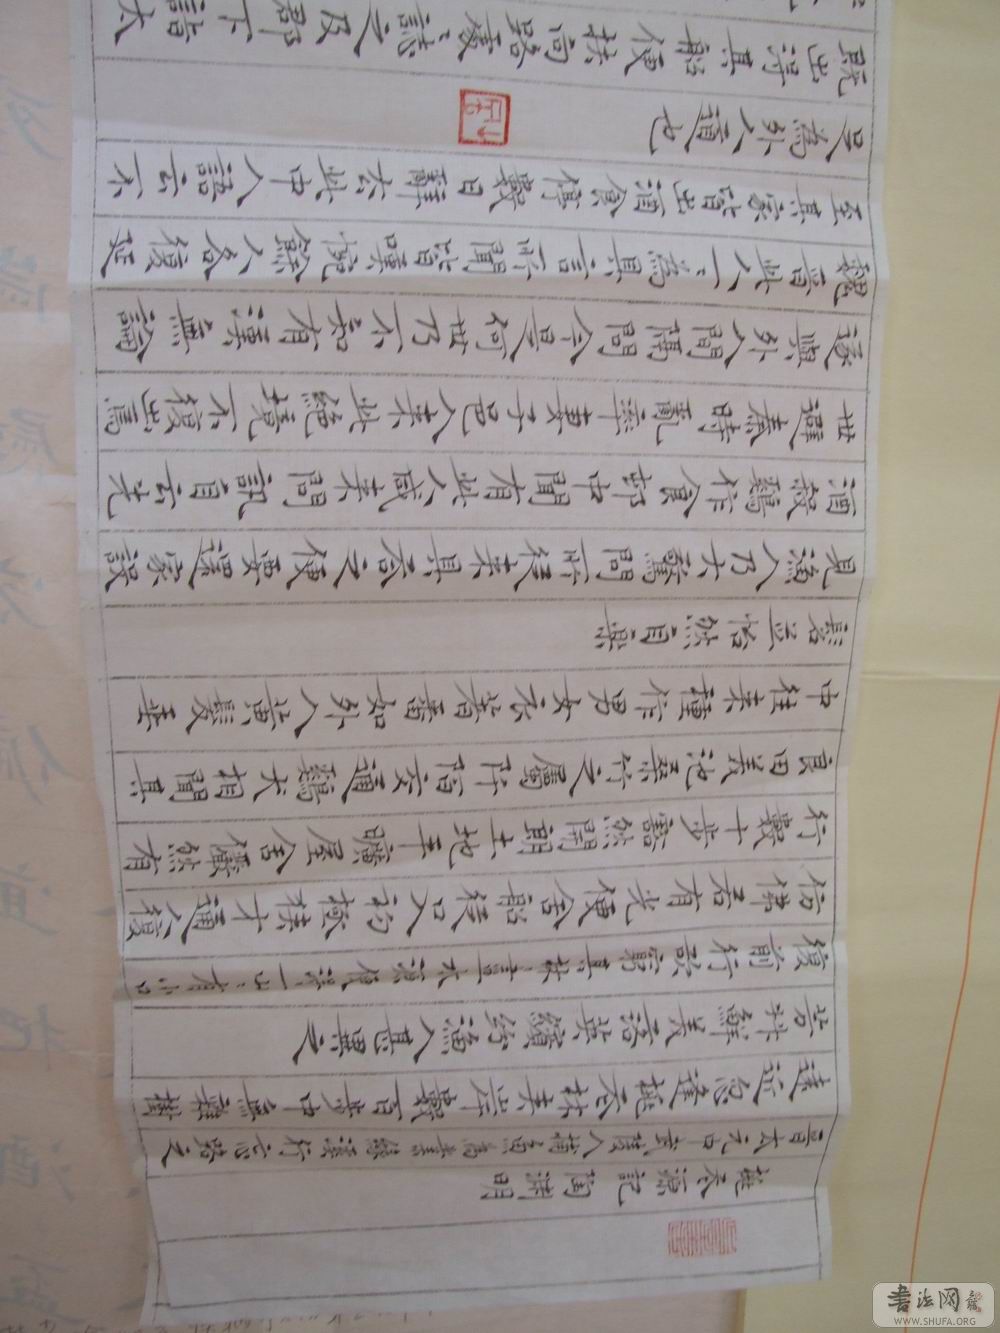 桃花源記 陶淵明
晉太元中武陵人捕魚為業緣溪行忘路之
遠近忽逢桃花林夾岸數百步中無雜樹
芳草鮮美落英繽紛漁人甚異之
復前行欲窮其林、盡水源便得一山、有小口
仿佛若有光便舍船從口入初極狹才通人復
行數十步豁然開朗土地平曠屋舍儼然有
良田美池桑竹之屬阡陌交通鷄犬相聞其
中往來種作男女衣著悉如外人黃髮垂
髫並怡然自樂
見漁人乃大驚問所從來具答之便要還家設
酒殺鷄作食村中聞有此人咸來問訊自云先
世避秦時亂率妻子邑人來此絕境不復出焉
遂與外人間隔問今是何世乃不知有漢無論
魏晉此人一、為具言所聞皆嘆惋餘人各復延
至其家皆出酒食停數日辭去此中人語云不
足為外人道也
既出得其船便扶向路處、誌之及郡下詣太
書法网
WWW.SHUFA.ORG